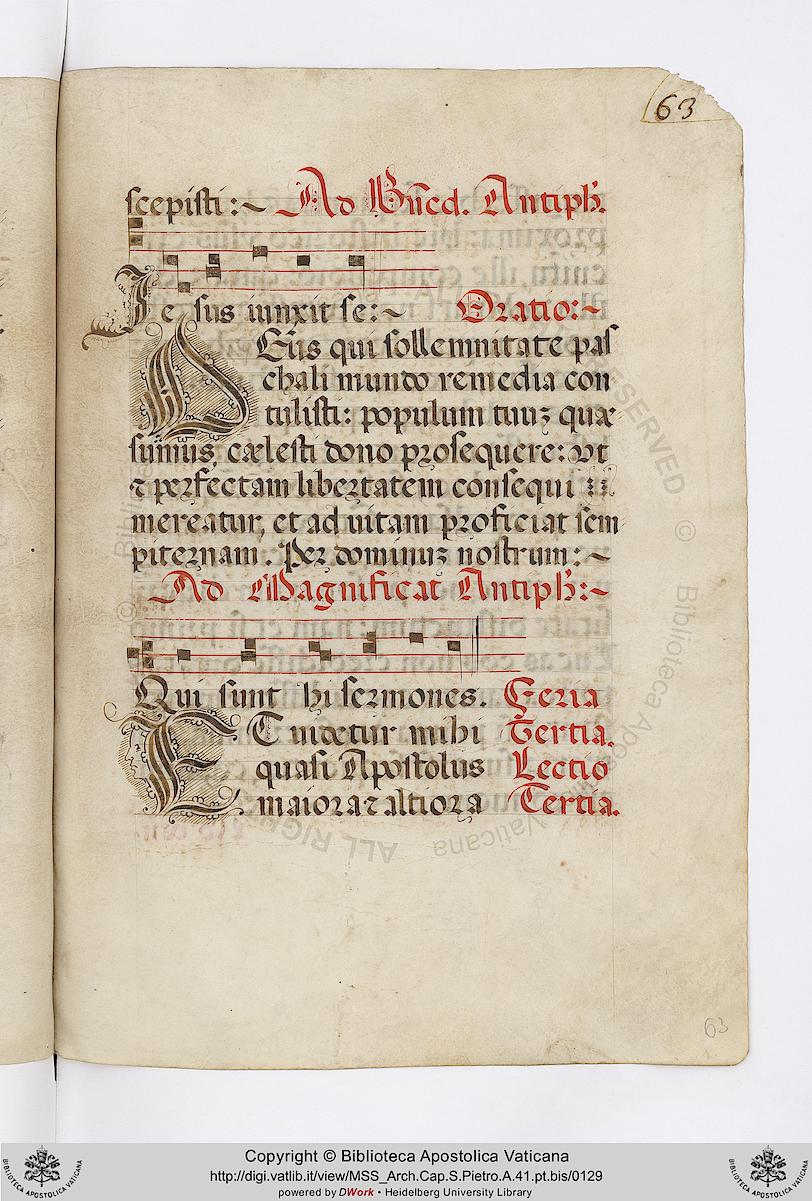 63
scepisti:~ Ad Bñcd. Antiph.
Je sus iunxit se:~ Oratio:~
DEus qui sollemnitate pas
chali mundo remedia con
tulisti: populum tuuȝ quæ
sumus, cælesti dono prosequere: vt
⁊ perfectam libertatem consequi
mereatur, et ad uitam proficiat sem
piternam. Per dominuȝ nostrum:~
Ad Magnificat Antiph:~
Qui sunt hi sermones. Feria
ET uidetur mihi Tertia.
quasi Apostolus Lectio
maiora ⁊ altiora Tertia.
63
Copyright © Biblioteca Apostolica Vaticana
http://digi.vatlib.it/view/MSS_Arch.Cap.S.Pietro.A.41.pt.bis/0129
powered by DWork • Heidelberg University Library
BIBLIOTECA APOSTOLICA VATICANA
BIBLIOTECA APOSTOLICA VATICANA